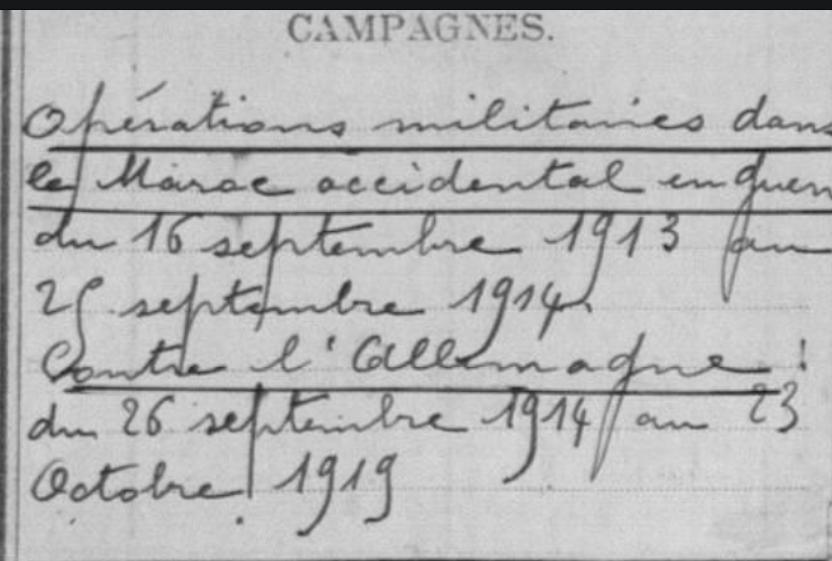 CAMPAGNES.
Opérations militaires dans
le Maroc occidental en guer
du 16 septembre 1913 au
25 septembre 1914.
Contre l'Allemagne :
du 26 septembre 1914 au 23
Octobre 1919